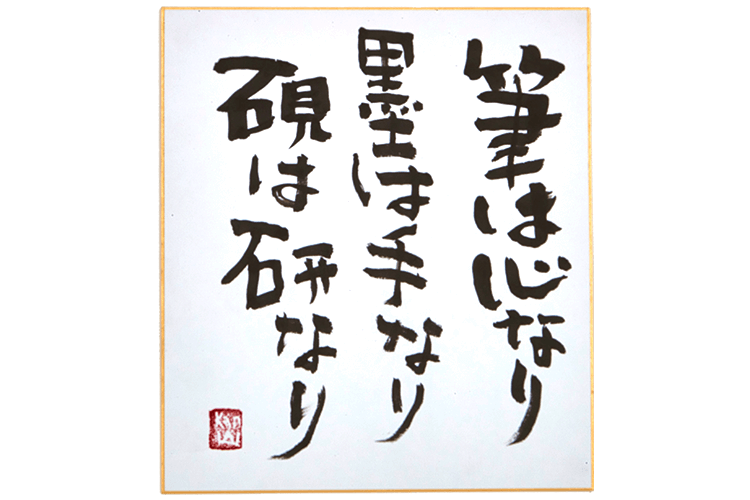 筆は心なり
墨は手なり
硯は研なり